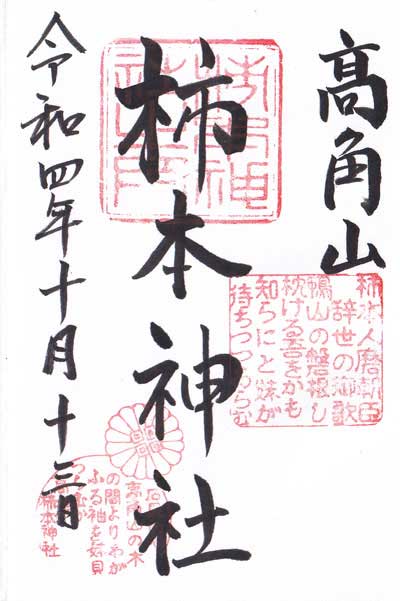 高角山
柿本人麿朝臣
辞世の御歌
鴨山の盤根し
枕ける吾をかも
知らにと妹が
待ちつつあらむ
柿本神社
高角山の木
の間よりわが
ふる袖を
柿本神社
令和四年十月十三日